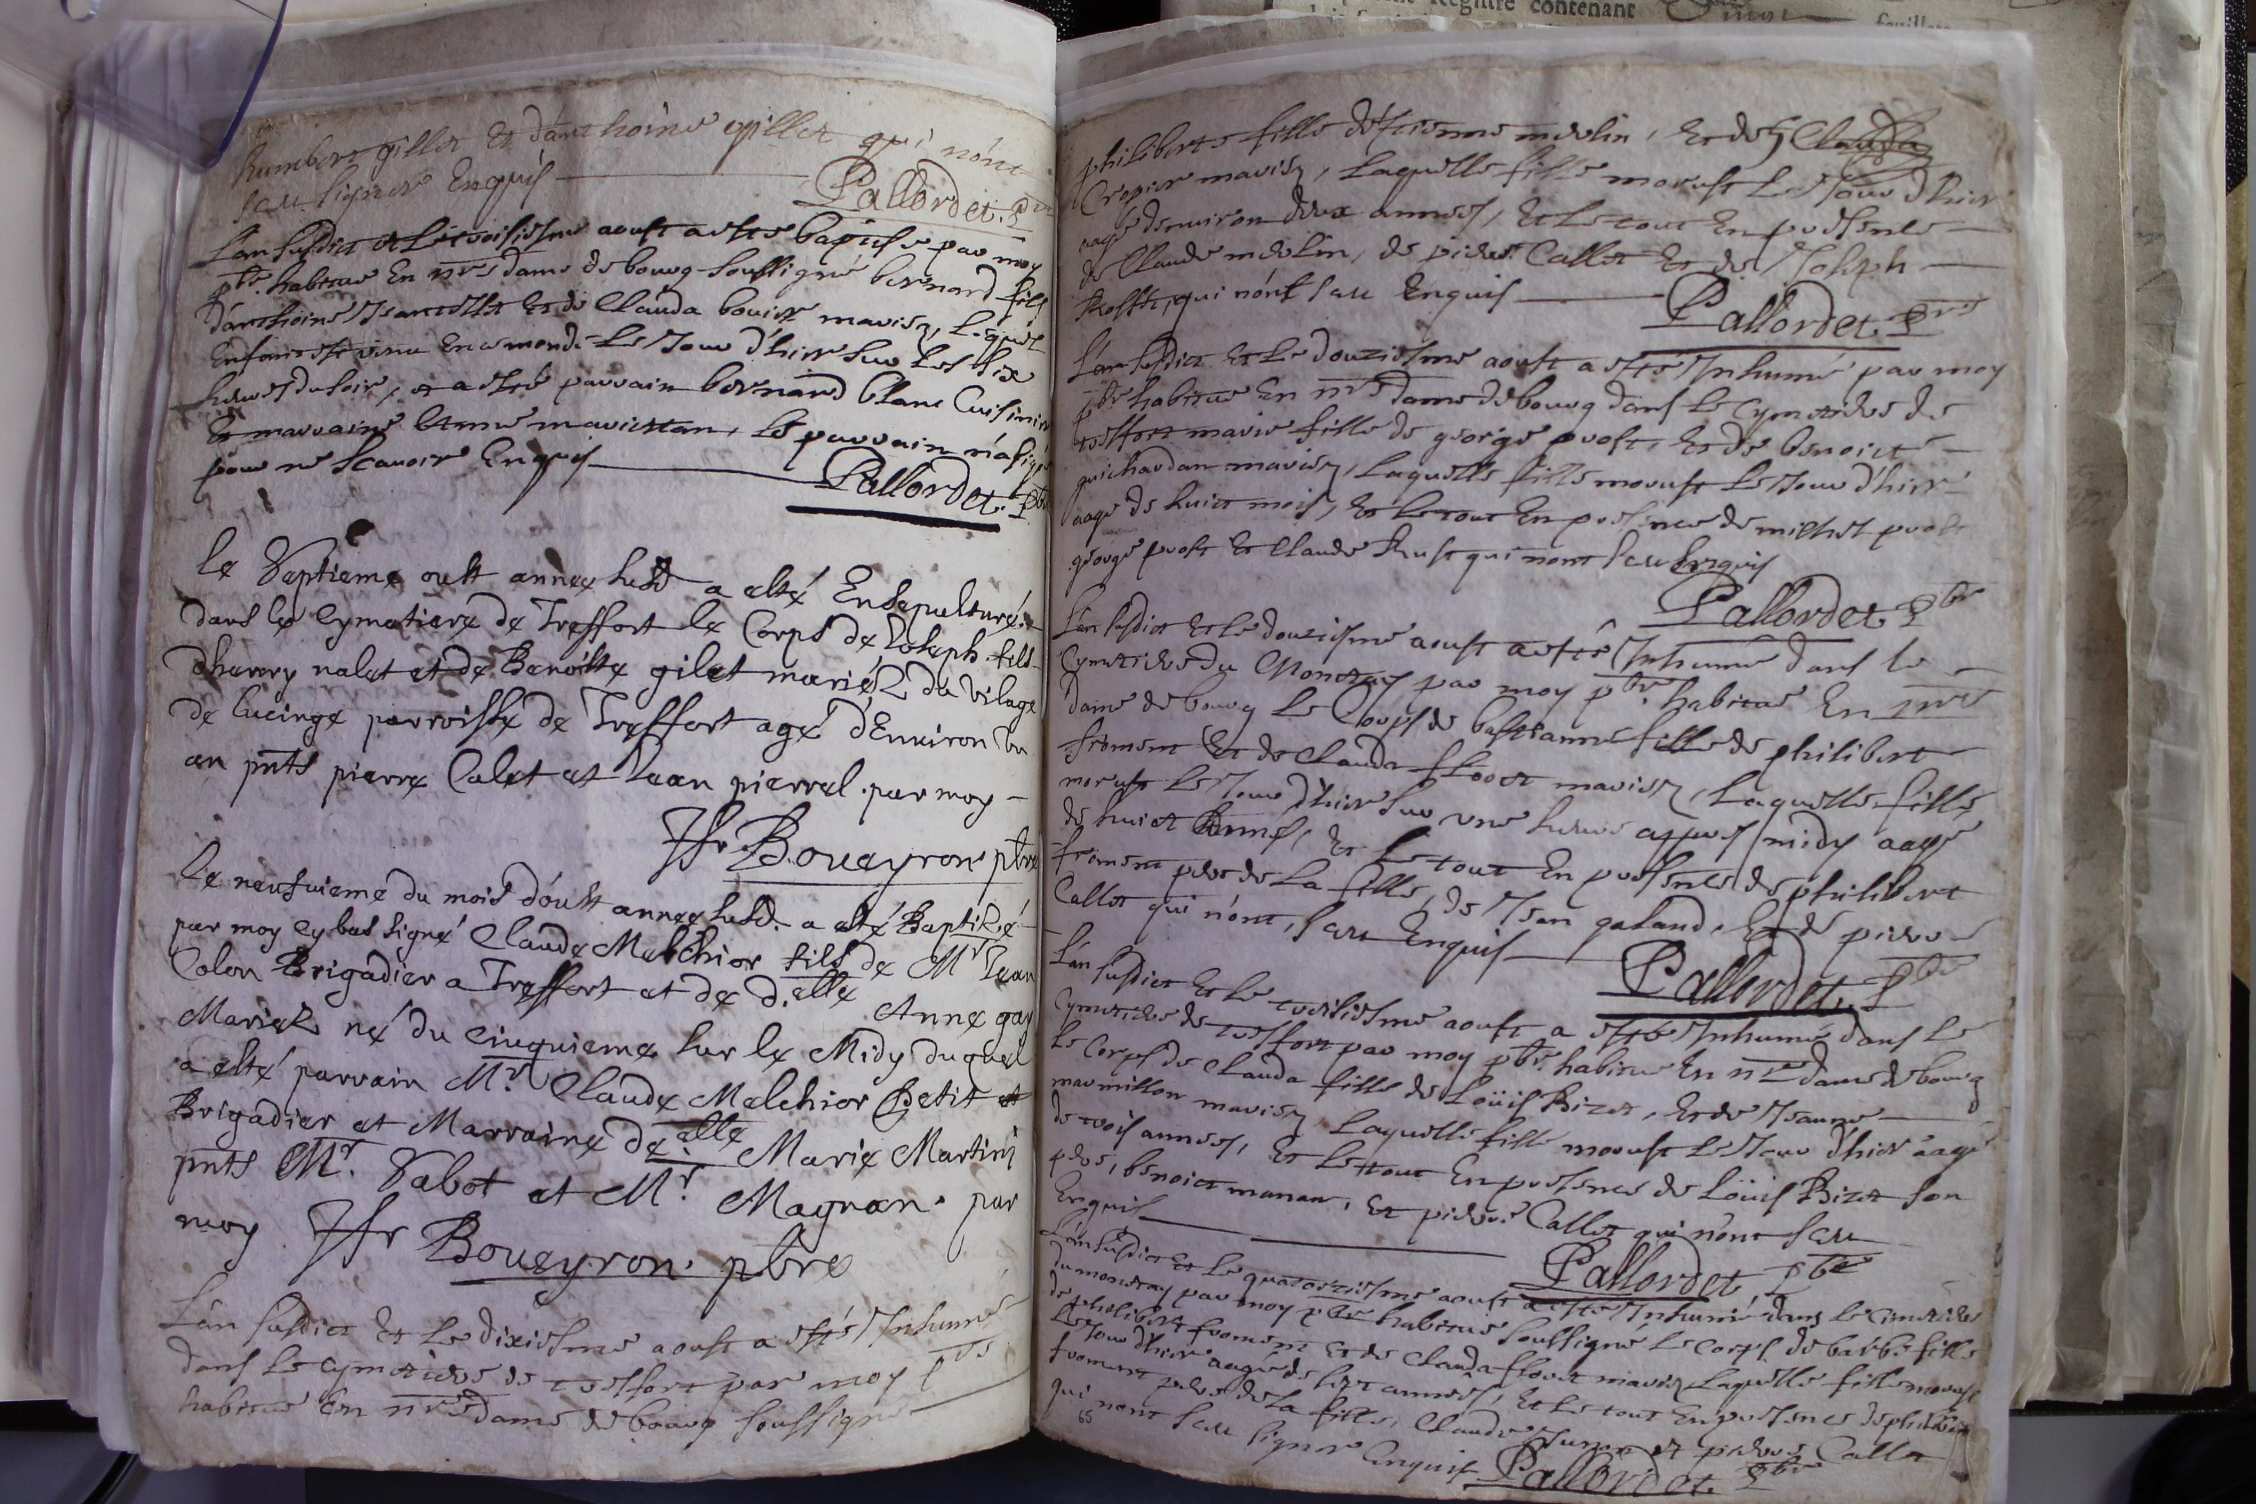 humbert gillet et d'anthoine gillet qui n'ont
sceu signer Enquis
Pallordet. pbr
L'an susdict et le troisiesme aoust a esté baptisé par moy
pbr. habitué En nre dame de bourg soussigné bernard fils
d'anthoine et de Clauda bouier mariez, lequel
Enfant est venu En ce monde Le Jour d'hier sur les six
heures du soir, et a esté parrain bernard blanc Cuisinier
Et marraine le parrain n'a signé
pour ne scavoir Enquis
Pallordet. pbr
le septieme oust annee susd. a esté Ensepulturé
dans le cymetiere de Treffort le Corps de Joseph fils
d'henry nalet et de Benoitte gilet mariéz du vilage
de lucinge parroisse de Treffort agé d'Environ un
an pnts pierre Calet et Jean pierrel par moy
Boueyron pbre
le neufvieme du mois d'oust annee susd. a esté Baptizé
par moy cy bas signé Claude Melchior fils de Mr Jean
Colon Brigadier a Treffort et de d.elle Anne gay
Mariez né du cinquieme sur le Midy duquel
a esté parrain Mr. Claude Melchior Petit
Brigadier et Marraine de.elle Marie Martin
pnts Mr. Sabot et Mr. Magnan. par
moy Boueyron. pbre
L'an susdict Et Le dixiesme aoust a esté Inhumé
dans Le cymetiere de treffort par moy pbre
habitué En nre dame de bourg soussigné
philiberte fille d'estienne merlin, Et de Clauda
Cropier mariez, Laquelle fille mourust Le Jour d'hier
aagé d'environ deux années, Et Le tout En presence
de Claude merlin, de pierre Callet Et de Joseph
qui n'ont sceu Enquis
Pallordet. pbre
L'an susdict Et Le douziesme aoust a esté Inhumé par moy
pbr habitué En nre dame de bourg dans Le Cymetiere de
treffort marie fille de george prost, Et de benoicte
guichardan mariez, Laquelle fille mourust Le Jour d'hier
aagé de huict mois, Et Le tout En presence de michel prost
george prost Et Claude qui n'ont sceu Enquis
Pallordet. pbr
L'an susdict Et Le douziesme aoust a esté Inhumé dans le
Cymetiere du Montcey par moy pbr. habitué En nre
dame de bourg Le Corps de bastianne fille de philibert
froment Et de Clauda floret mariez, Laquelle fille
mourust Le Jour d'hier sur une heure appres midy aagé
de huict années, Et Le tout En presence de philibert
froment pere de La fille, de Jean galand, Et de pierre
Callet qui n'ont sceu Enquis
Pallordet. pbr
L'an susdict Et Le treiziesme aoust a esté Inhumé dans Le
Cymetiere de treffort par moy pbr. habitué En nre dame de bourg
Le Corps de Clauda fille de Loüis Bizet, Et de Jeanne
marmillon mariez, Laquelle fille mourust Le Jour d'hier aagé
de trois années, Et Le tout En presence de Loüis Bizet son
pere, benoict manan, Et pierre Callet qui n'ont sceu
Enquis
Pallordet. pbr
L'an susdict Et Le quatorziesme aoust a esté Inhumé dans le Cimetiere
du par moy pbre habitué soussigné Le Corps de barbe fille
de philibert froment Et de Clauda floret mariez Laquelle fille mourust
Le Jour d'hier aagé de sept années, Et Le tout En presence de philibert
froment pere de La fille, Claude et pierre Callet
qui n'ont sceu signer Enquis Pallordet. pbr
65
Registre contenant
feuillets